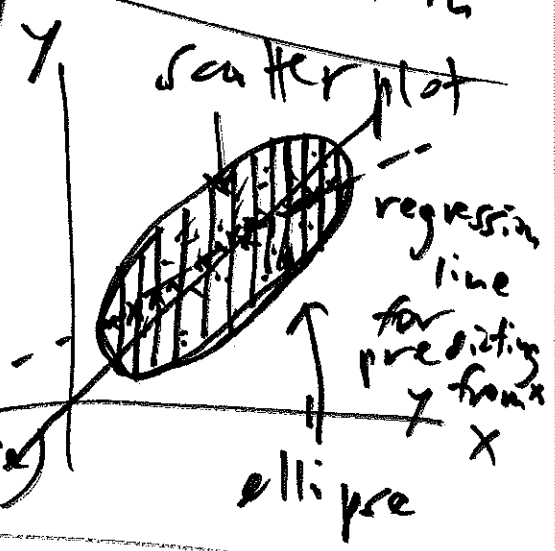 y
scatter plot
regression
line
for
predicting
y from x
x
ellipse